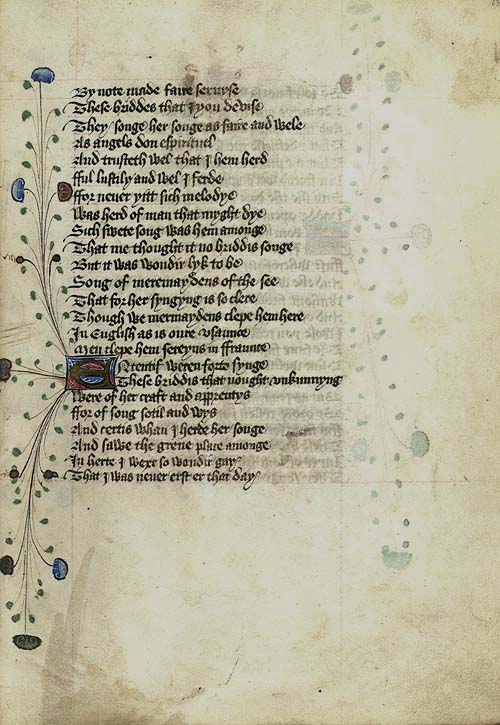 By note made faire seruyse
These briddes that I you devise
They songe her songe as faire and wele
As angels don espirituel
And trusteth wel that I hem herd
fful lustily and wel I ferde
ffor neuer yitt sich melodye
Was herd of man that myght dye
Sich swete song was hem amonge
That me thought it no briddis songe
But it was wondir lyk to be
Song of meremaydens of the see
That for her syngyng is so clere
Though we mermaydens clepe hem here
In English as is oure vsaunce
Men clepe hem sereyns in ffraunce
Ententif weren forto synge
These briddis that nought vnkunnyng
Were of her craft and apprentys
ffor of song sotil and wys
And certis whan I herde her songe
And sawe the grene place amonge
In herte I wexe so wondir gay
That I was neuer erst er that day